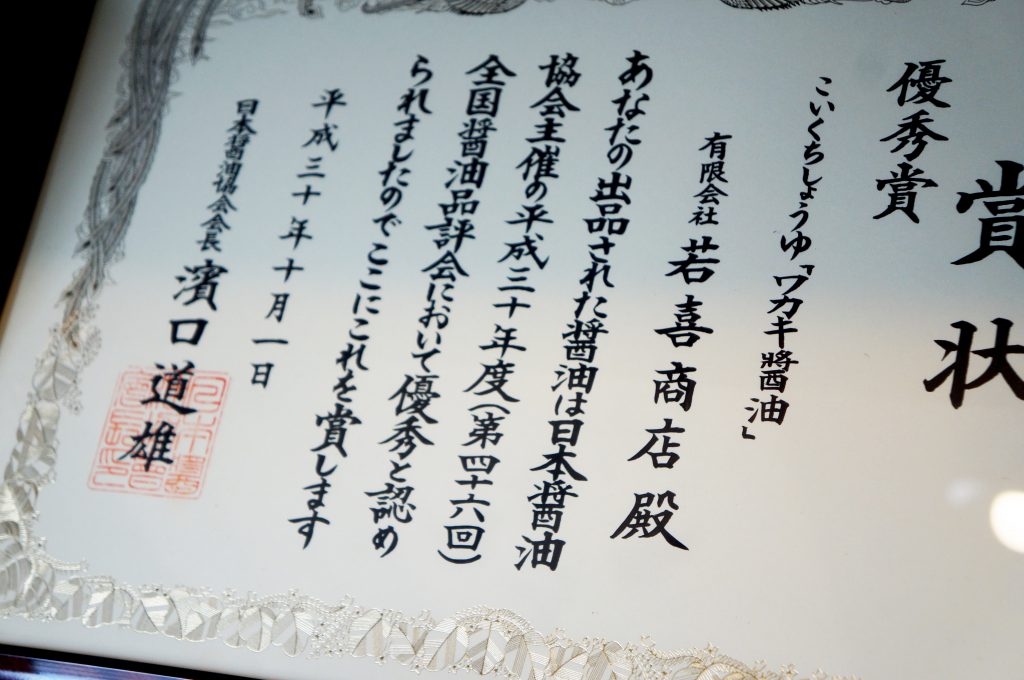 賞状
優秀賞
こいくちしょうゆ「ワカキ醬油」
有限会社 若喜商店殿
あなたの出品された醬油は日本醬油
協会主催の平成三十年度(第四十六回)
全国醬油品評会において優秀と認め
られましたのでここにこれを賞します
平成三十年十月一日
日本醬油協会会長 濱口道雄